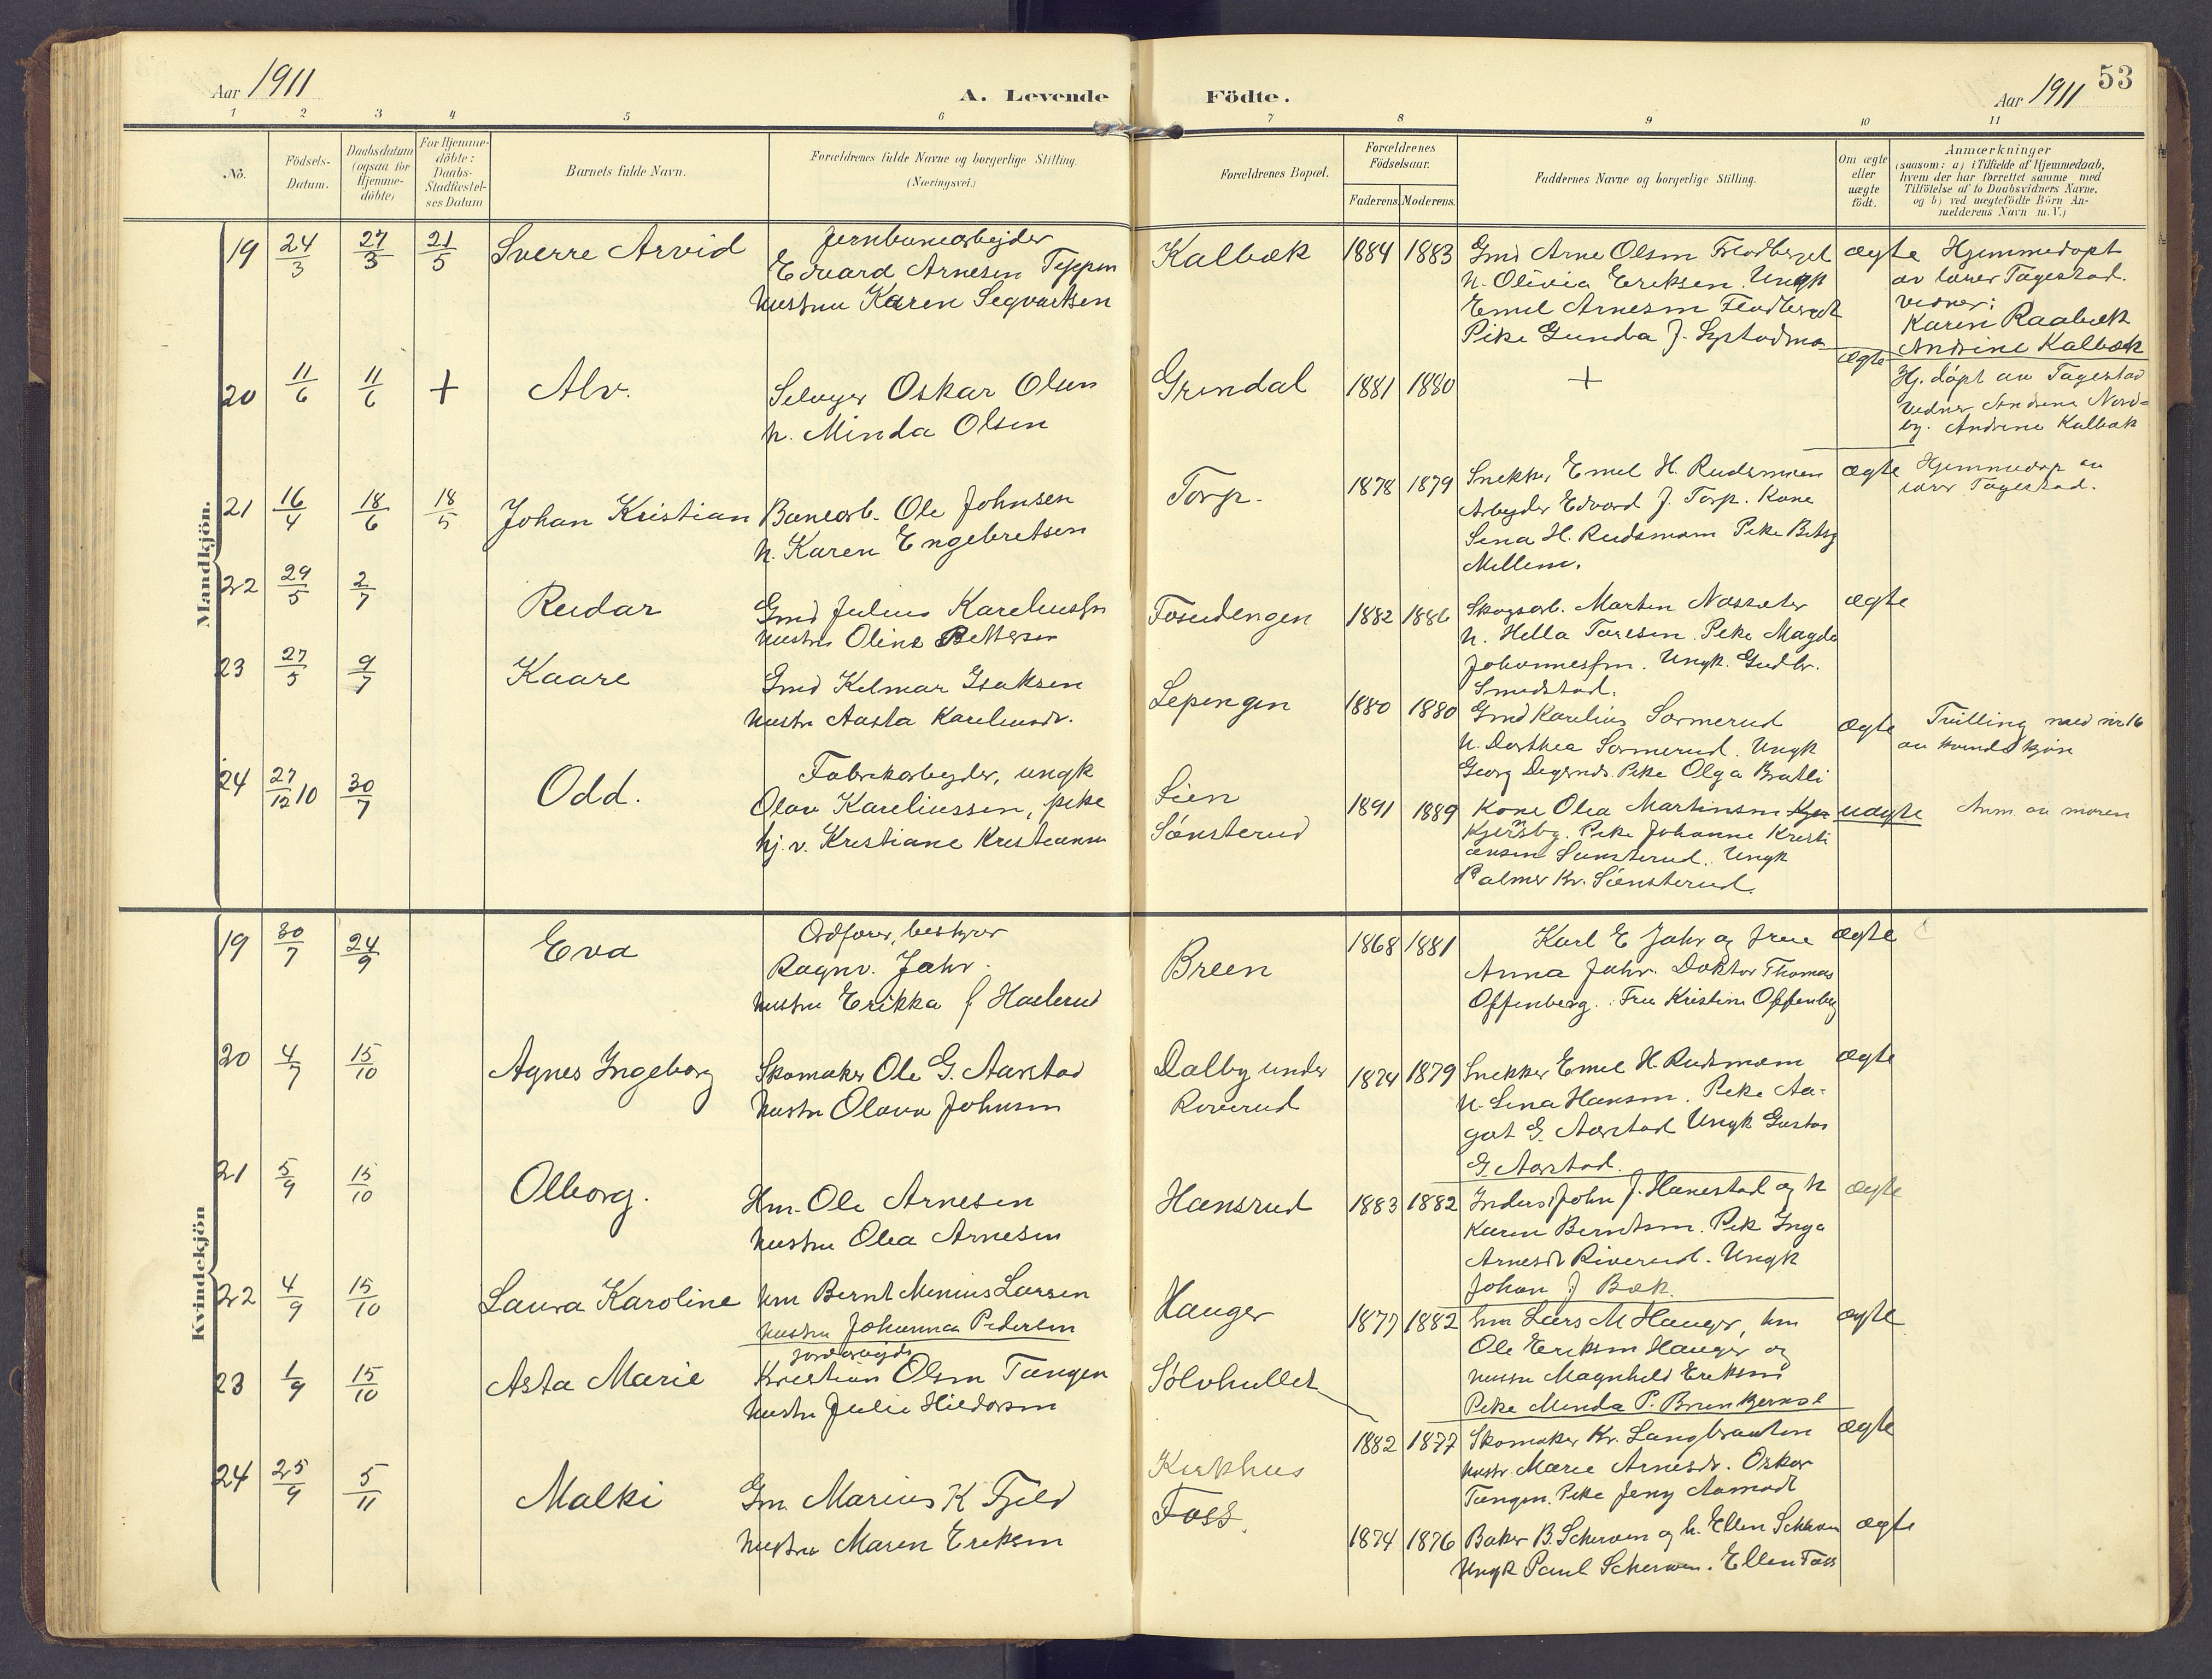 Aar 1911
A. Levende Födte.
Aar 1911 53
1 2 3 4 5 6 7 8 9 10 11
No.
Födsels-Datum.
Daabsdatum (ogsaa for Hjemme-döbte)
For Hjemme-döbte: Daabs-Stadfæstel-ses Datum
Barnets fulde Navn.
Forældrenes fulde Navne og borgerlige Stilling. (Næringsvei.)
Forældrenes Bopæl.
Forældrenes Födselsaar.
Faderens. Moderens.
Faddernes Navne og borgerlige Stilling.
Om ægte eller uægte födt.
Anmærkninger
(saasom: a) i Tilfælde af Hjemmedaab,
hvem der har forrettet samme med
Tilföielse af to Daabsvidners Navne.
og b) ved uægtefödte Börn An-
melderens Navn m.V.)
Mandkjön.
19 24/3 27/3 21/5 Sverre Arvid
Jernbanearbejder
Edvard Arnesen Teppen
hustru Karen Segvartsen
Kalbæk 1884 1883
Gmd Arne Olsen Flodberget
h. Olivia Eriksen. Ungk
Emil Arnesen
Pike Gunda J.
ægte
Hjemmedøpt
av lærer Tagestad.
vidner:
Karen Raabæk
Andrine Kalbæk
20 11/6 11/6 + Alv.
Selveyer Oskar Olsen
h. Minda Olsen
Grindal 1881 1880 +
ægte
Hj. døpt av Tagestad
vidner Andrine Nord-
by. Andrine Kalbæk
21 16/4 18/6 18/5 Johan Kristian
Banearb. Ole Johnsen
h. Karen Engebretsen
Torp. 1878 1879
Snekker Emil H. Rudsmoen
Arbeyder Edvard J. Torp. Kone
Lina H. Rudsmoen Pike Betsy
Millem.
ægte
Hjemmedøp av
lærer Tagestad.
22 29/5 2/7 Reidar
Gmd Julius Kareliussen
hustru Oline Pettersen
Fosudengen 1882 1886
Skogsarb. Martin Nassæter
h. Hella Taresen. Pike Magda
Johannessen. Ungk. Gudbr.
Smedstad.
ægte
23 27/5 9/7 Kaare
Gmd Kilmar Isaksen
hustru Aasta Kareliusdr.
Lepengen 1880 1880
Gmd Karelius Sormerud
h. Dorthea Sormerud. Ungk
Georg Pike Olga Bratli
ægte
Tvilling med nr. 16
av kvindekjøn
24 27/12 10 30/7 Odd.
Fabrikarbeyder, ungk
Olav Kareliussen, pike
hj. v. Kristiane Kristiansen
Lien
Sønsterud
1891 1889
Kone Olea Martinsen
Kjernsby. Pike Johanne Kristi
ansen Sønsterud. Ungk
Palmer Kr. Sønsterud.
uægte
Anm. av moren
Kvindekjön
19 30/7 24/9 Eva
Ordfører, bestyrer
Ragnv. Jahr.
hustru Erikka f. Haslerud
Breen 1868 1881
Karl E Jahr og frue
Anna Jahr. Doktor Thomas
Offenberg. Fru Kristine Offenberg
ægte
20 4/7 15/10 Agnes Ingeborg
Skomaker Ole G. Aarstad
hustru Olava Johnsen
Dalby under
Roverud
1874 1879
Snekker Emil H. Rudsmoen
h. Lina Hansen. Pike Aa-
got G. Aarstad Ungk Gustav
G. Aarstad.
ægte
21 5/9 15/10 Olborg.
Hm. Ole Arnesen
hustru Olea Arnesen
Hansrud 1883 1882
Inders. John J. Hanestad og h
Karen Berntsen. Pik Inga
Arnesdr Riverud. Ungk
Johan J Bæk.
ægte
22 4/9 15/10 Laura Karoline
hm Bernt Minius Larsen
hustru Johanna Pedersen
Hauger 1877 1882
hm Lars M Hauger, hm
Ole Eriksen Hauger og
hustru Magnhild Eriksen
Pike Minda P.
ægte
23 1/9 15/10 Asta Marie
jordarbejder
Kristian Olsen Tangen
hustru Julie Hildorsen
Sølvhullet 1882 1877
Skomaker Kr. Langbraaten
hustr. Marie Arnesdr. Oskar
Tangen. Pike Jeny Aamodt
ægte
24 25/9 5/11 Malki
Gm. Marius K Fjeld
hustru Maren Eriksen
Kirkhus
Foss.
1874 1876
Baker B. Scherven og h. Ellen Scherven
Ungk Paul Scherven. Ellen Foss
ægte